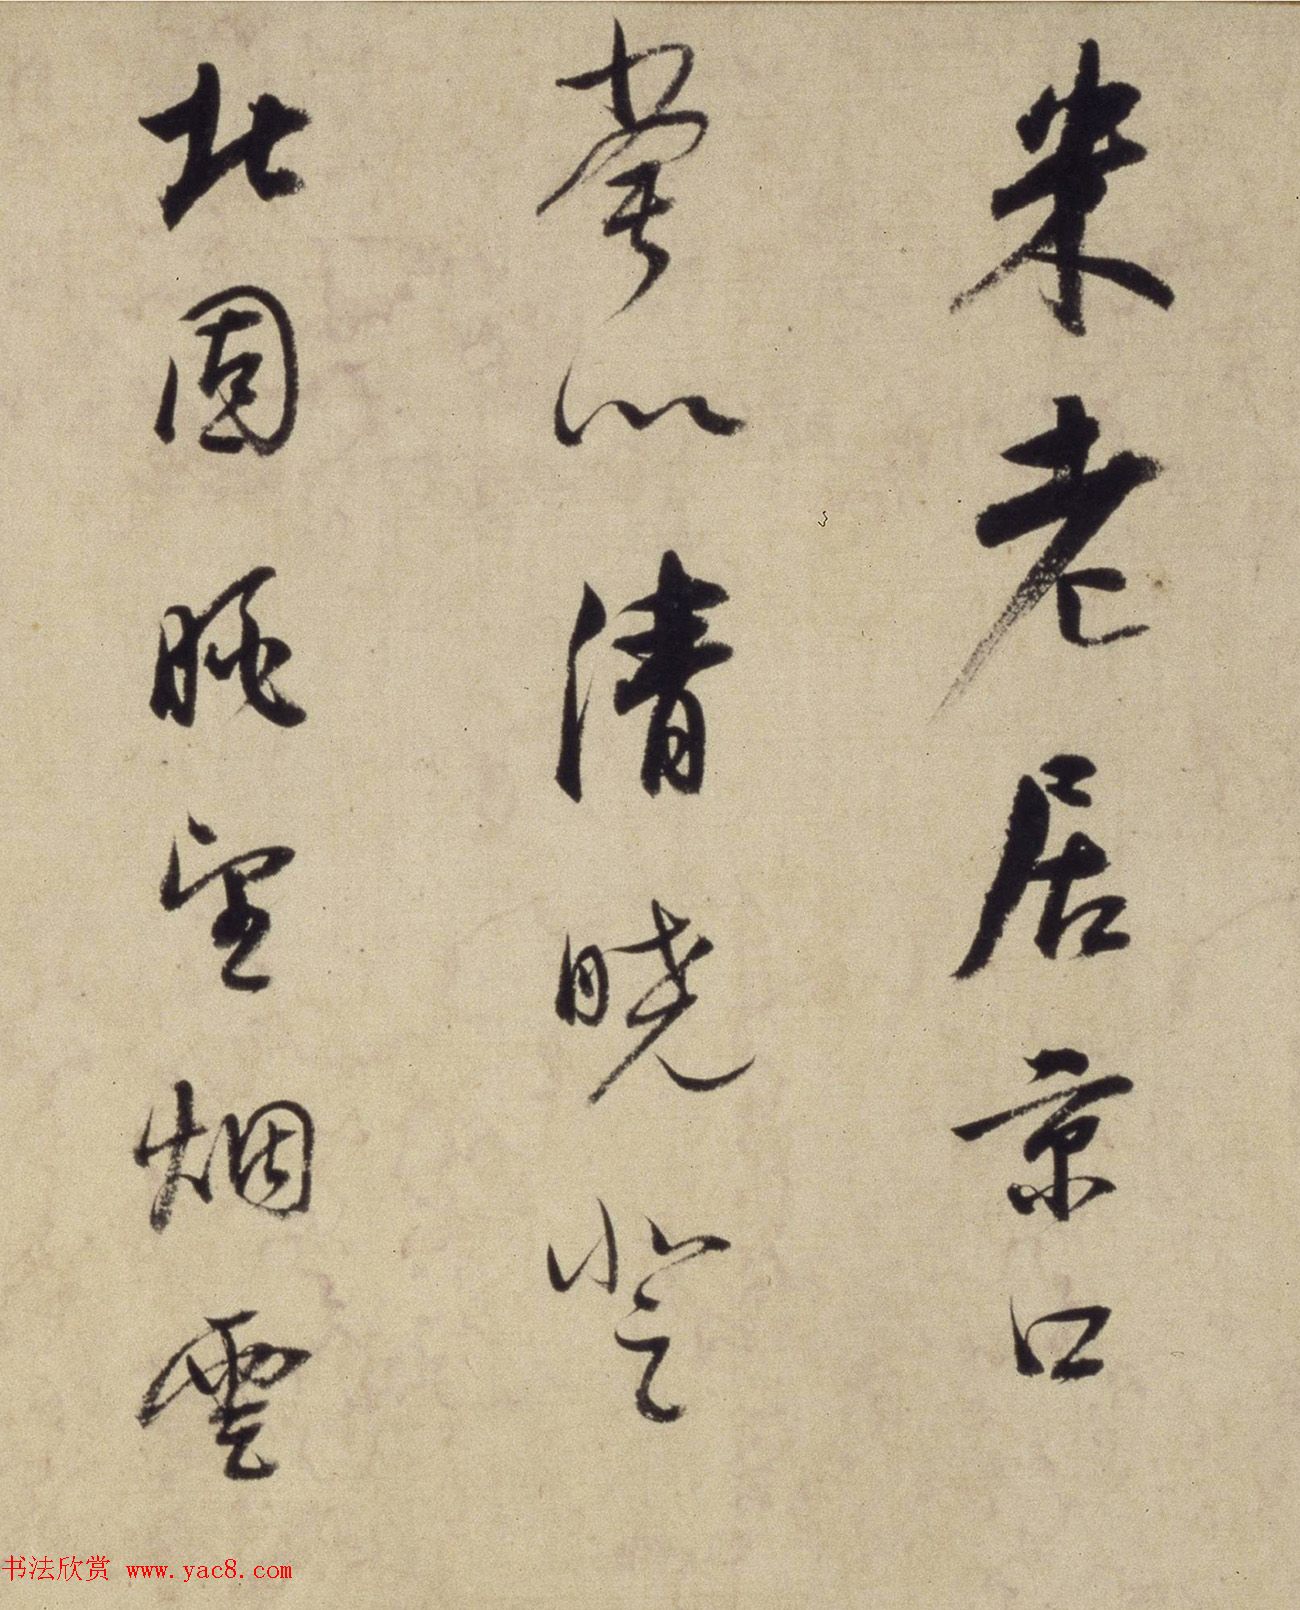 米老居京口
葦以清晓登
北固眺望烟雲
书法欣赏 www.yac8.com